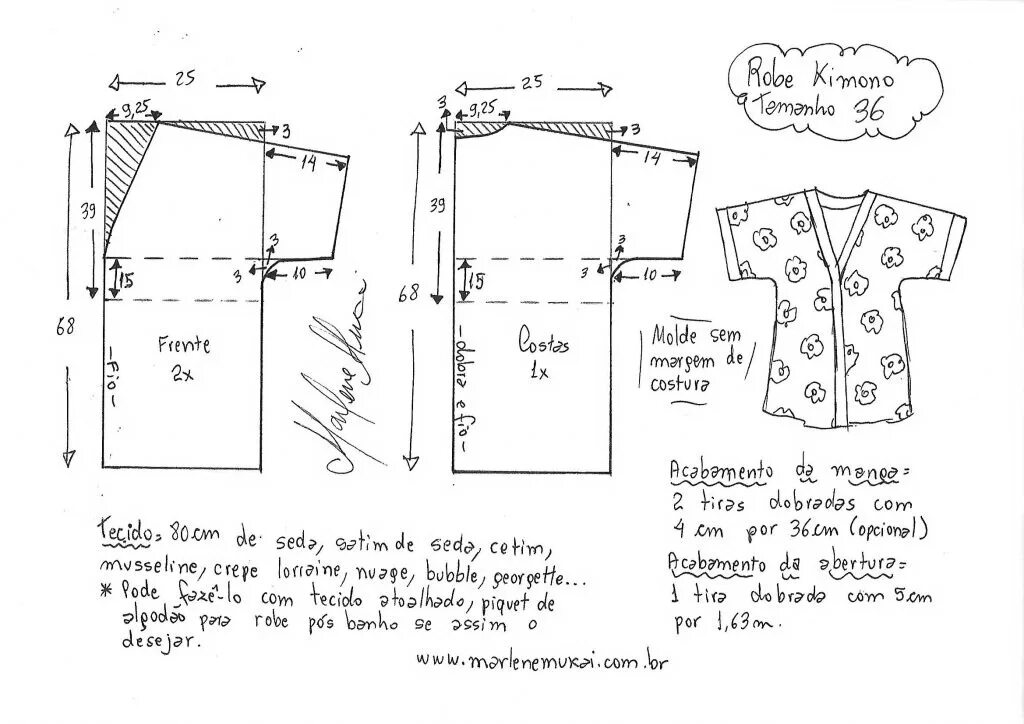 Robe Kimono
Tamanho 36
25
9,25
3
14
39
68
15
3
3
10
Frente
2x
-Fio-
Marlene Mukai
25
3
9,25
3
14
39
68
15
3
3
10
Costas
1x
-dobra e fio-
Molde sem
margem de
costura
Acabamento da manga=
2 tiras dobradas com
4 cm por 36cm (opcional)
Acabamento da abertura=
1 tira dobrada com 5cm
por 1,63m.
Tecido= 80cm de seda, satim de seda, cetim,
musseline, crepe lorraine, nuage, bubble, georgette...
* Pode fazê-lo com tecido atoalhado, piquet de
algodão para robe pós banho se assim o
desejar.
www.marlenemukai.com.br